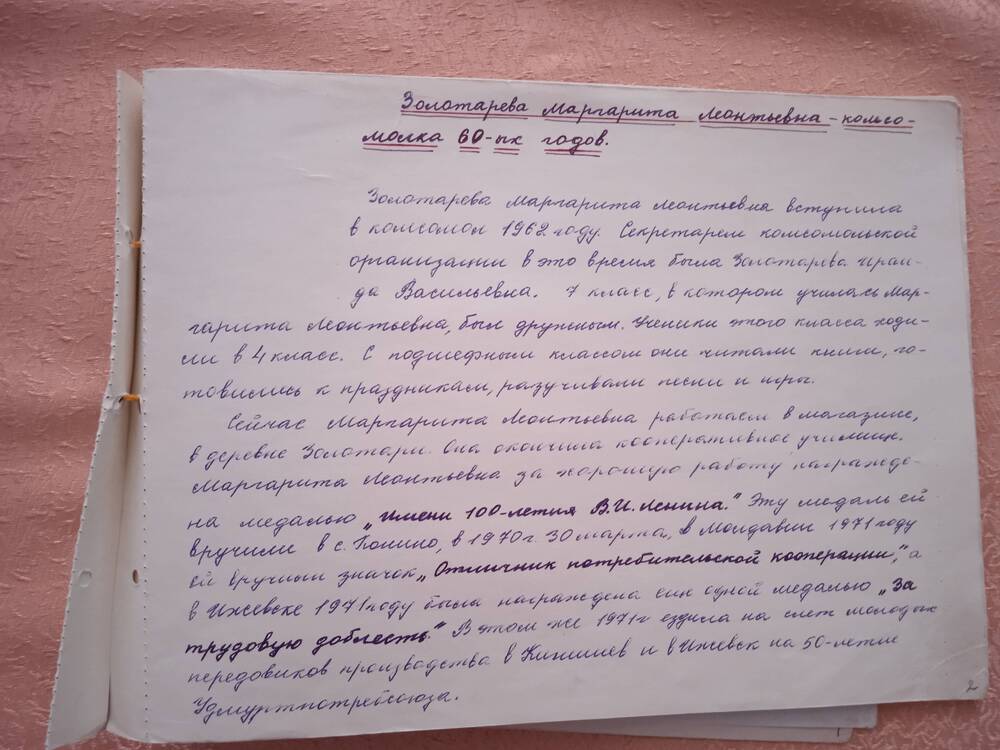 Золотарева Маргарита Леонтьевна - комсо-
молка 60-ых годов.
Золотарева Маргарита Леонтьевна вступила
в комсомол 1962 году. Секретарем комсомольской
организации в это время была Золотарева Ираи-
да Васильевна. 7 класс, в котором училась Мар-
гарита Леонтьевна, был дружным. Ученики этого класса ходи-
ли в 4 класс. С подшефным классом они читали книги, го-
товились к праздникам, разучивали песни и игры.
Сейчас Маргарита Леонтьевна работает в магазине,
в деревне Золотари. Она окончила кооперативное училище.
Маргарита Леонтьевна за хорошую работу награжде-
на медалью „Имени 100-летия В.И. Ленина." Эту медаль ей
вручили в с. Понино, в 1970 г. 30 марта, в Молдавии 1971 году
ей вручили значок „Отличник потребительской кооперации", а
в Ижевске 1971 году была награждена еще одной медалью „За
трудовую доблесть." В этом же 1971 г ездила на слет молодых
передовиков производства в Кишинев и в Ижевск на 50-летие
Удмуртпотребсоюза.
2